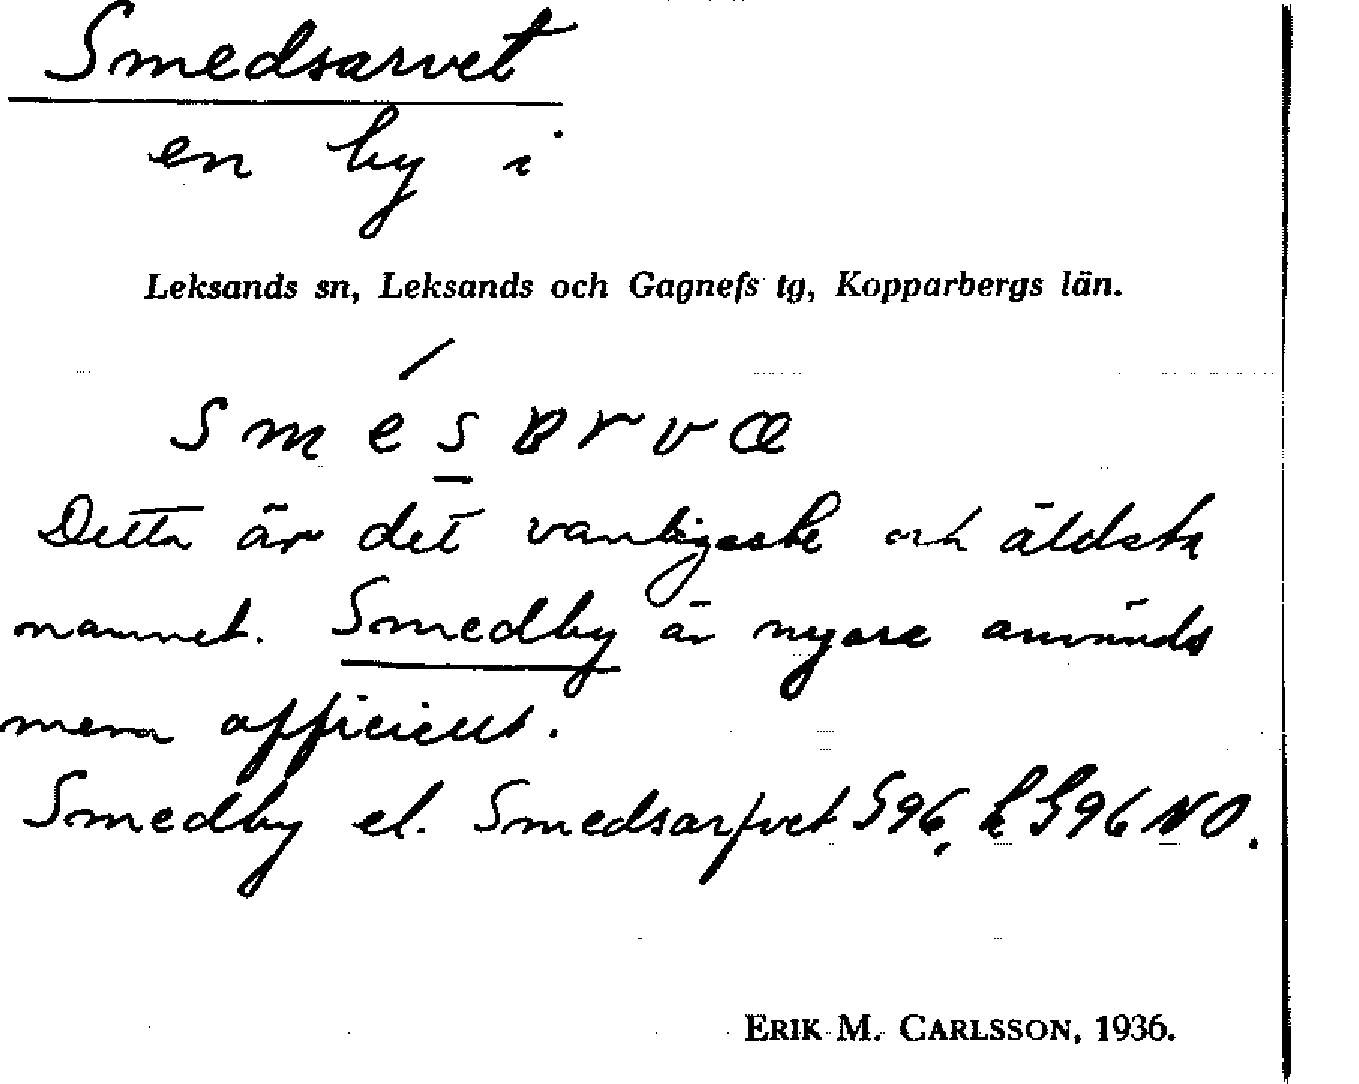 Smedsarvet
en by i
Leksands sn, Leksands och Gagnefs tg, Kopparbergs län.
smésɐrvæ
Detta är det vanligaste och äldsta
namnet. Smedby är nyare används
mera officiellt.
Smedby el. Smedsarfvet S96, k S96 NO.
ERIK M. CARLSSON, 1936.